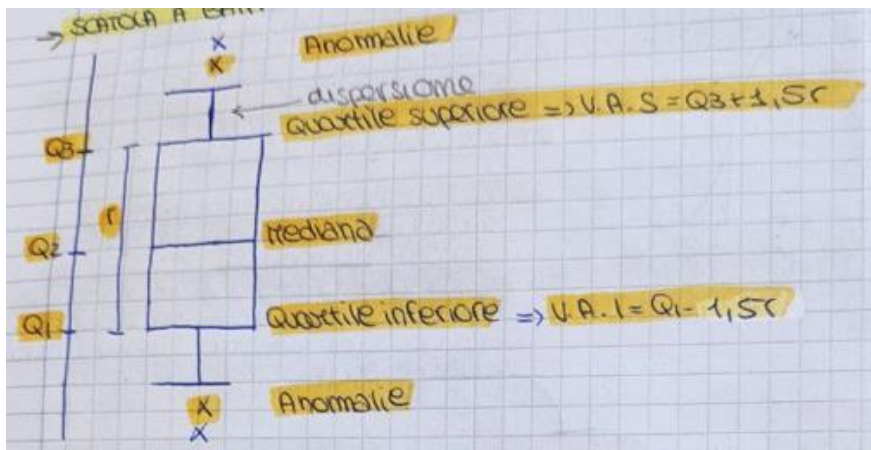 → SCATOLA A
x
x Anomalie
dispersione
Quartile superiore => V.A.S = Q3 + 1,5r
Q3
r
Q2 Mediana
Q1 Quartile inferiore => V.A.I = Q1 - 1,5r
x Anomalie
x